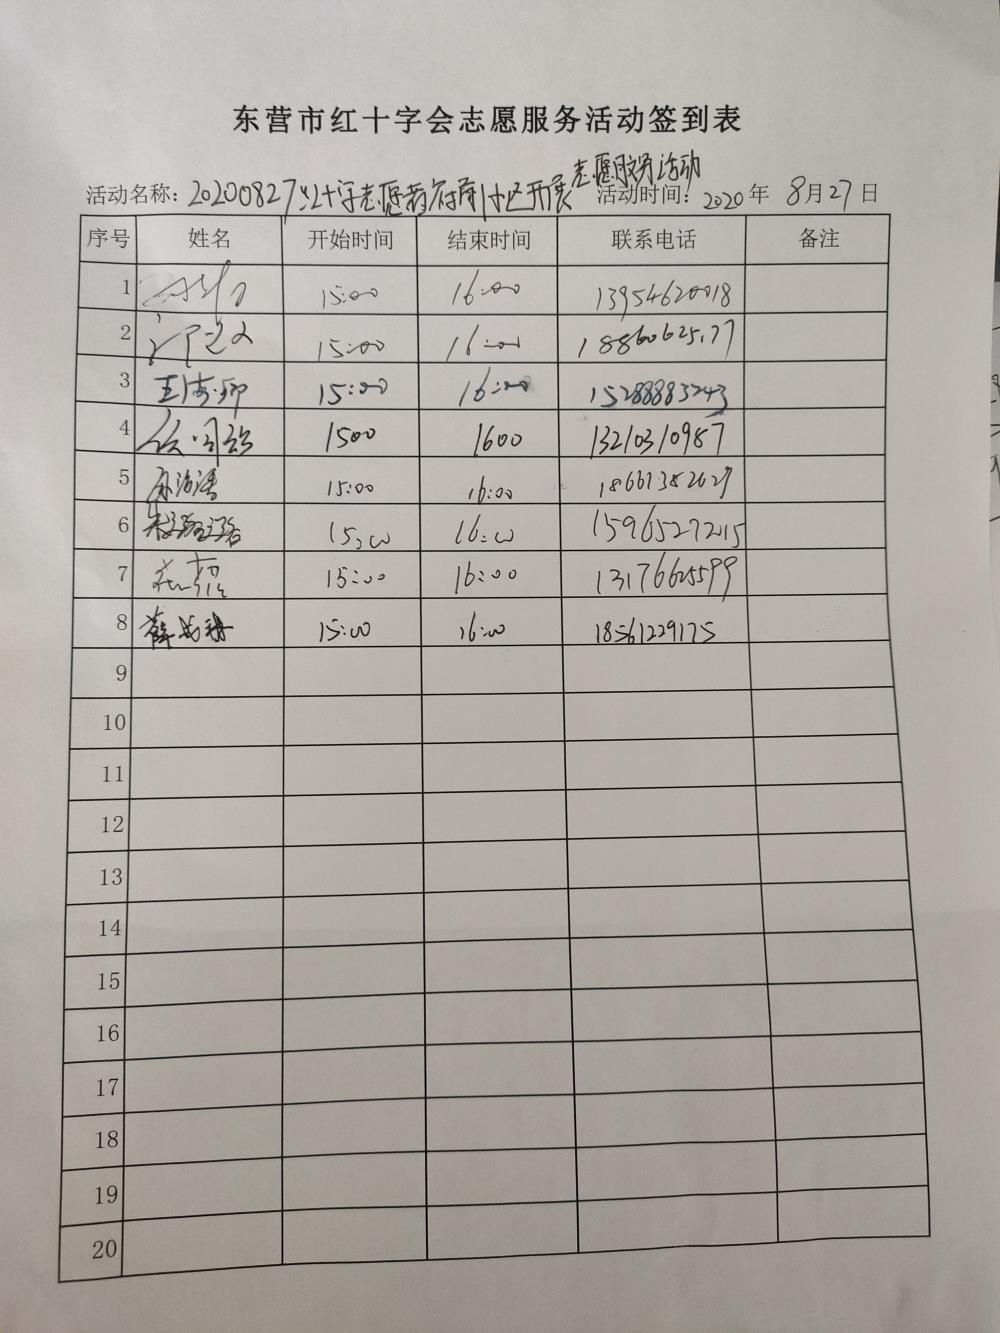 东营市红十字会志愿服务活动签到表
活动名称：20200827红十字志愿者府前小区开展志愿服务活动 活动时间：2020年 8月27日
序号 姓名 开始时间 结束时间 联系电话 备注
1 15:00 16:00 13954620018
2 15:00 16:00
3 15:00 16:00 15288883243
4 1500 1600 13210310987
5 15:00 16:00 18661382629
6 15:00 16:00 15965272215
7 15:00 16:00 13176625599
8 15:00 16:00 18561229175
9
10
11
12
13
14
15
16
17
18
19
20